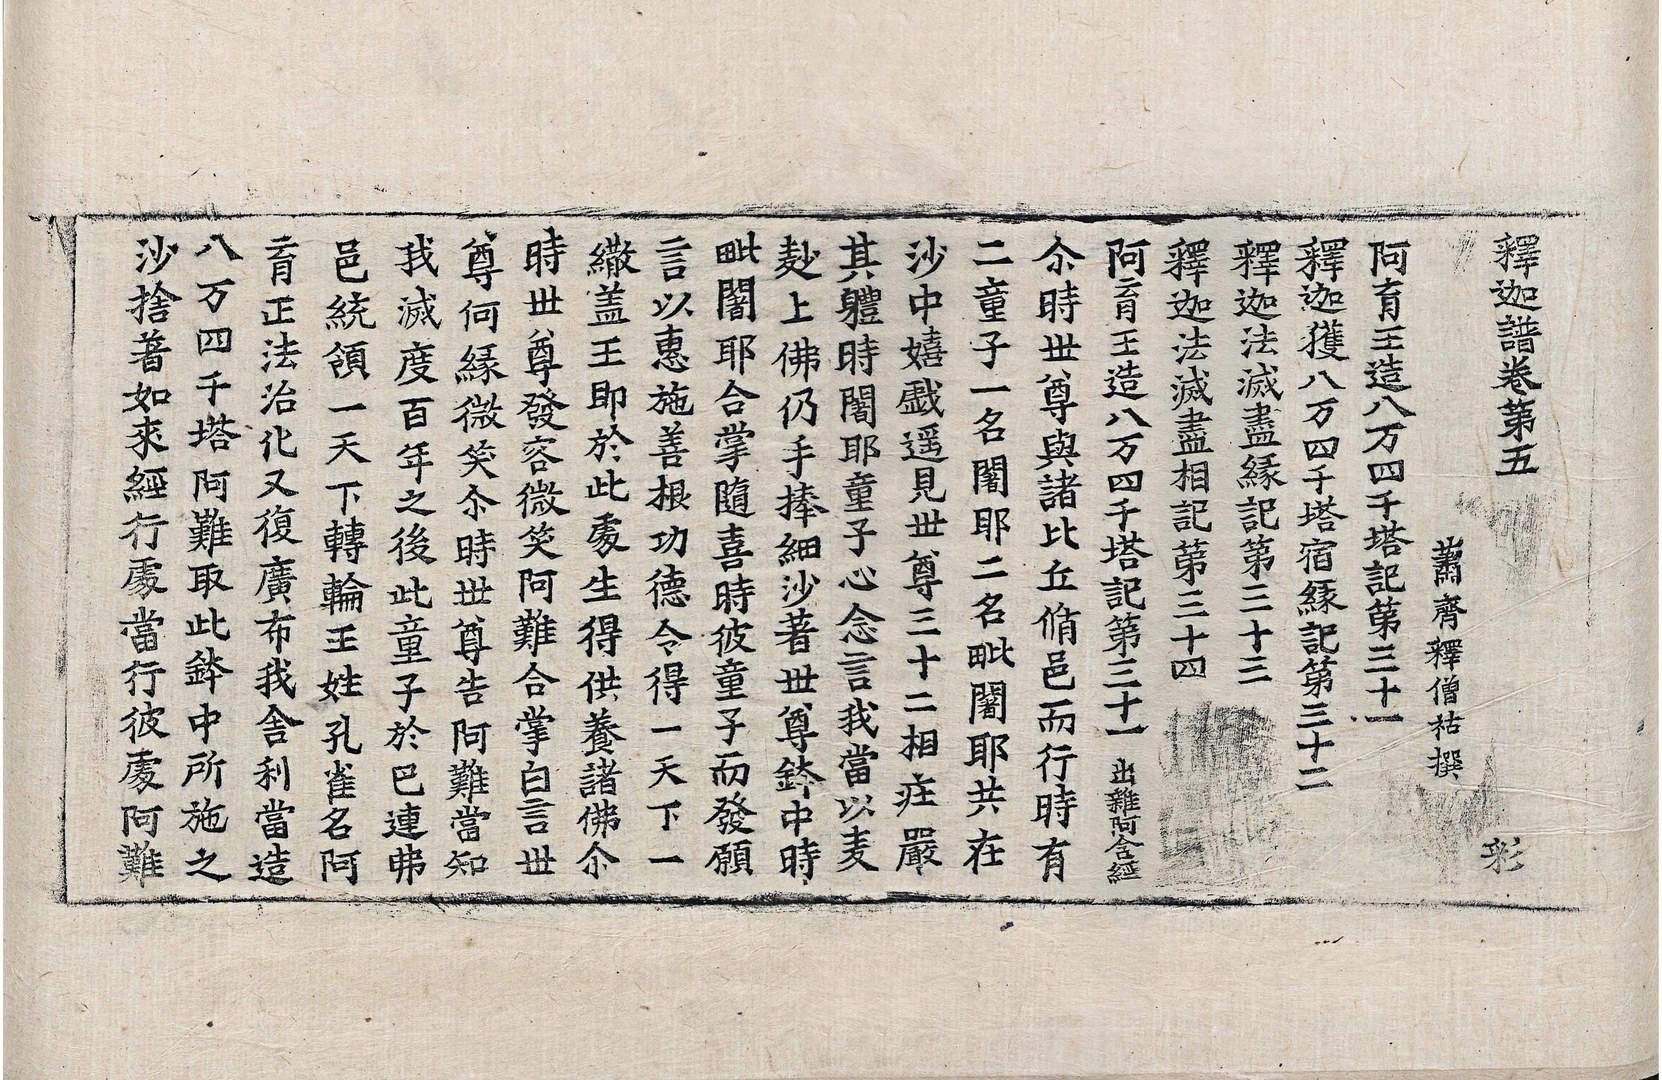 釋迦譜卷第五　彩
蕭齊釋僧祐撰
阿育王造八万四千塔記第三十一
釋迦獲八万四千塔宿緣記第三十二
釋迦法滅盡緣記第三十三
釋迦法滅盡相記第三十四
阿育王造八万四千塔記第三十一 出雜阿含經
尒時世尊與諸比丘脩邑而行時有
二童子一名闍耶二名毗闍耶共在
沙中嬉戲遥見世尊三十二相莊嚴
其軆時闍耶童子心念言我當以麦
麨上佛仍手捧細沙著世尊鉢中時
毗闍耶合掌隨喜時彼童子而發願
言以惠施善根功德令得一天下一
繖盖王即於此處生得供養諸佛尒
時世尊發容微笑阿難合掌白言世
尊何緣微笑尒時世尊告阿難當知
我滅度百年之後此童子於巴連弗
邑統領一天下轉輪王姓孔雀名阿
育正法治化又復廣布我舍利當造
八万四千塔阿難取此鉢中所施之
沙捨著如來經行處當行彼處阿難